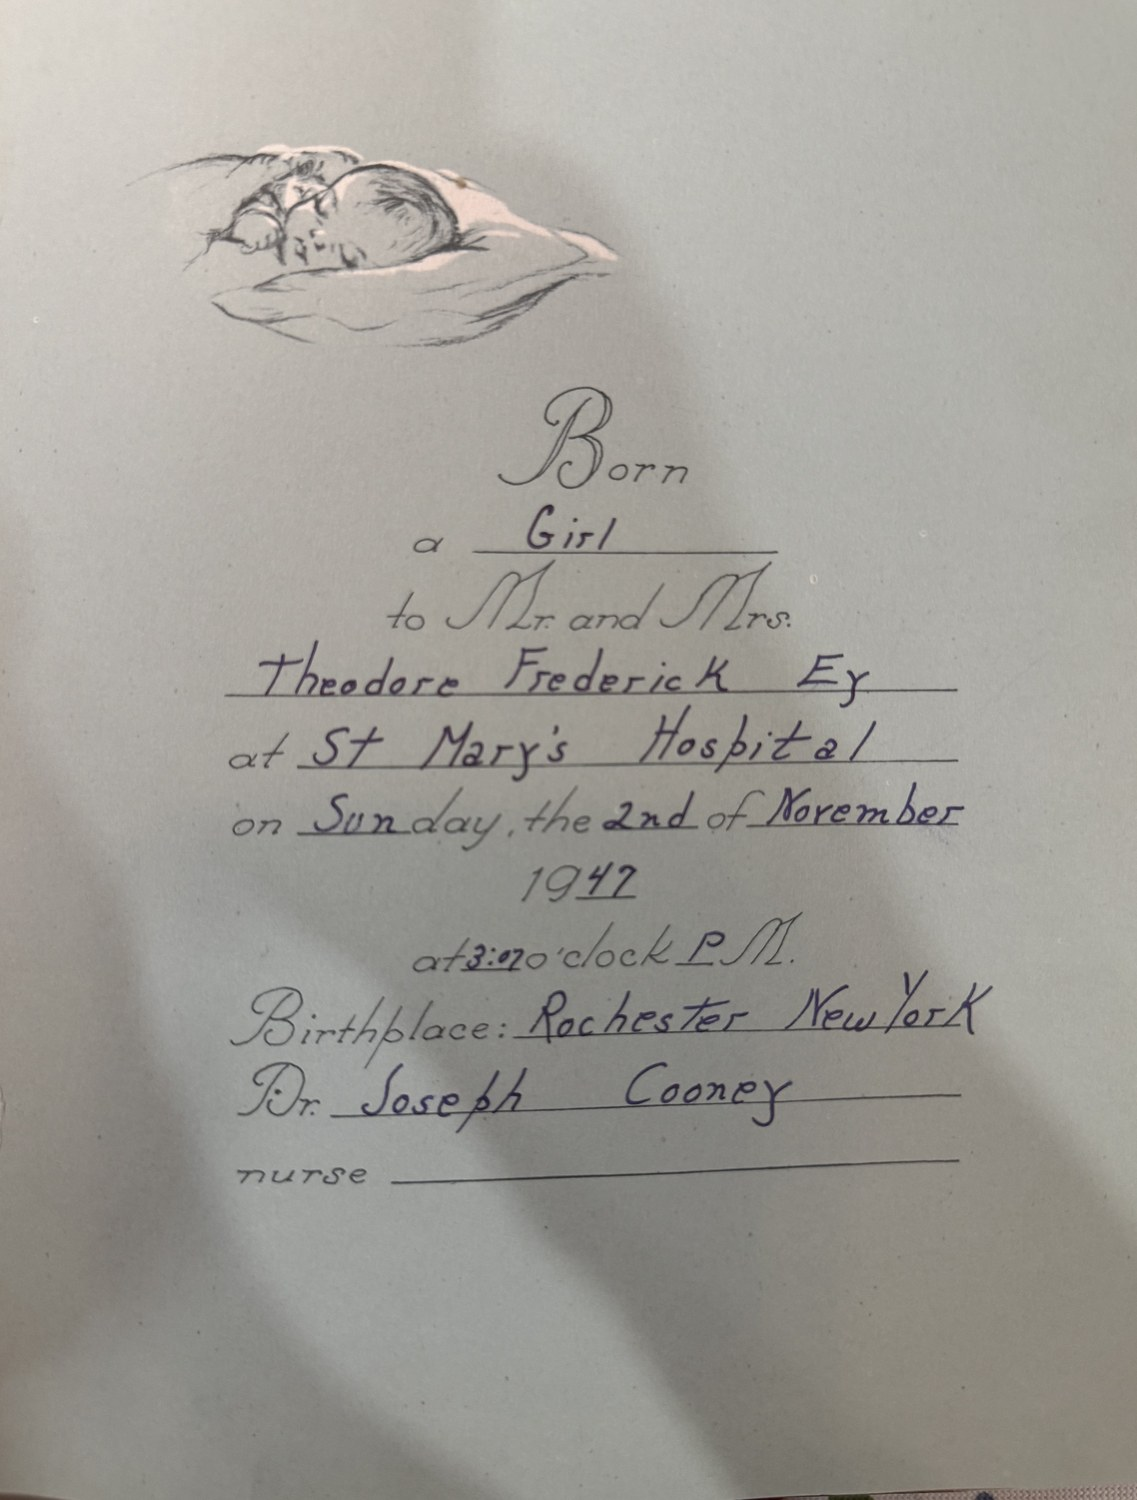 Born
a Girl
to Mr. and Mrs.
Theodore Frederick Ey
at St Mary's Hospital
on Sunday, the 2nd of November
1947
at 3:07 o'clock P M.
Birthplace: Rochester New York
Dr. Joseph Cooney
nurse